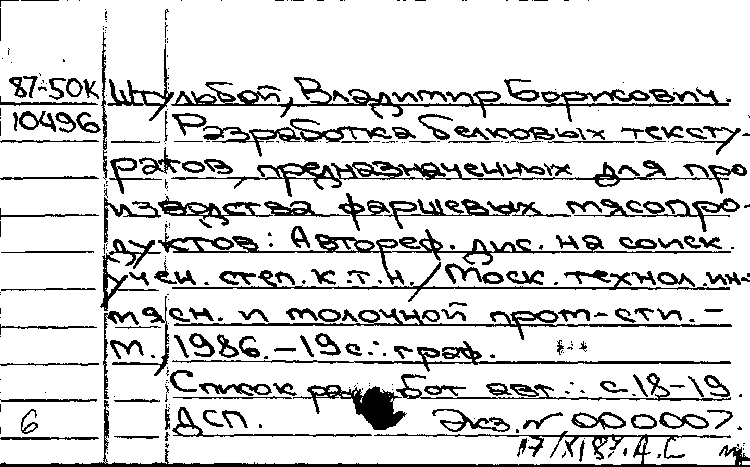 87-50К Штульбой, Владимир Борисович.
10496 Разработка белковых тексту-
ратов, предназначенных для про-
изводства фаршевых мясопро-
дуктов: Автореф. дис. на соиск.
учен. степ. к.т.н./Моск. технол. ин-т
мясн. и молочной пром-сти. -
М., 1986. - 19 с.: граф.
Список работ авт.: с. 18-19.
6 ДСП. Экз. N 000007.
17/XI 87. А.С